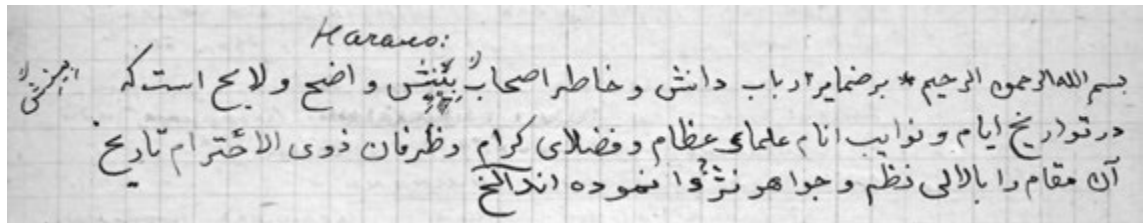 Начало:
بسم الله الرحمن الرحيم * برضماير ارباب دانش و خاطر اصحاب بينش واضح و لايح است كه
در تواريخ ايام و نوايب انام علماى عظام و فضلاى كرام و ظرفان ذوى الاحترام تاريخ
آن مقام را بالالى نظم و جواهر نثر وا نموده اند الخ